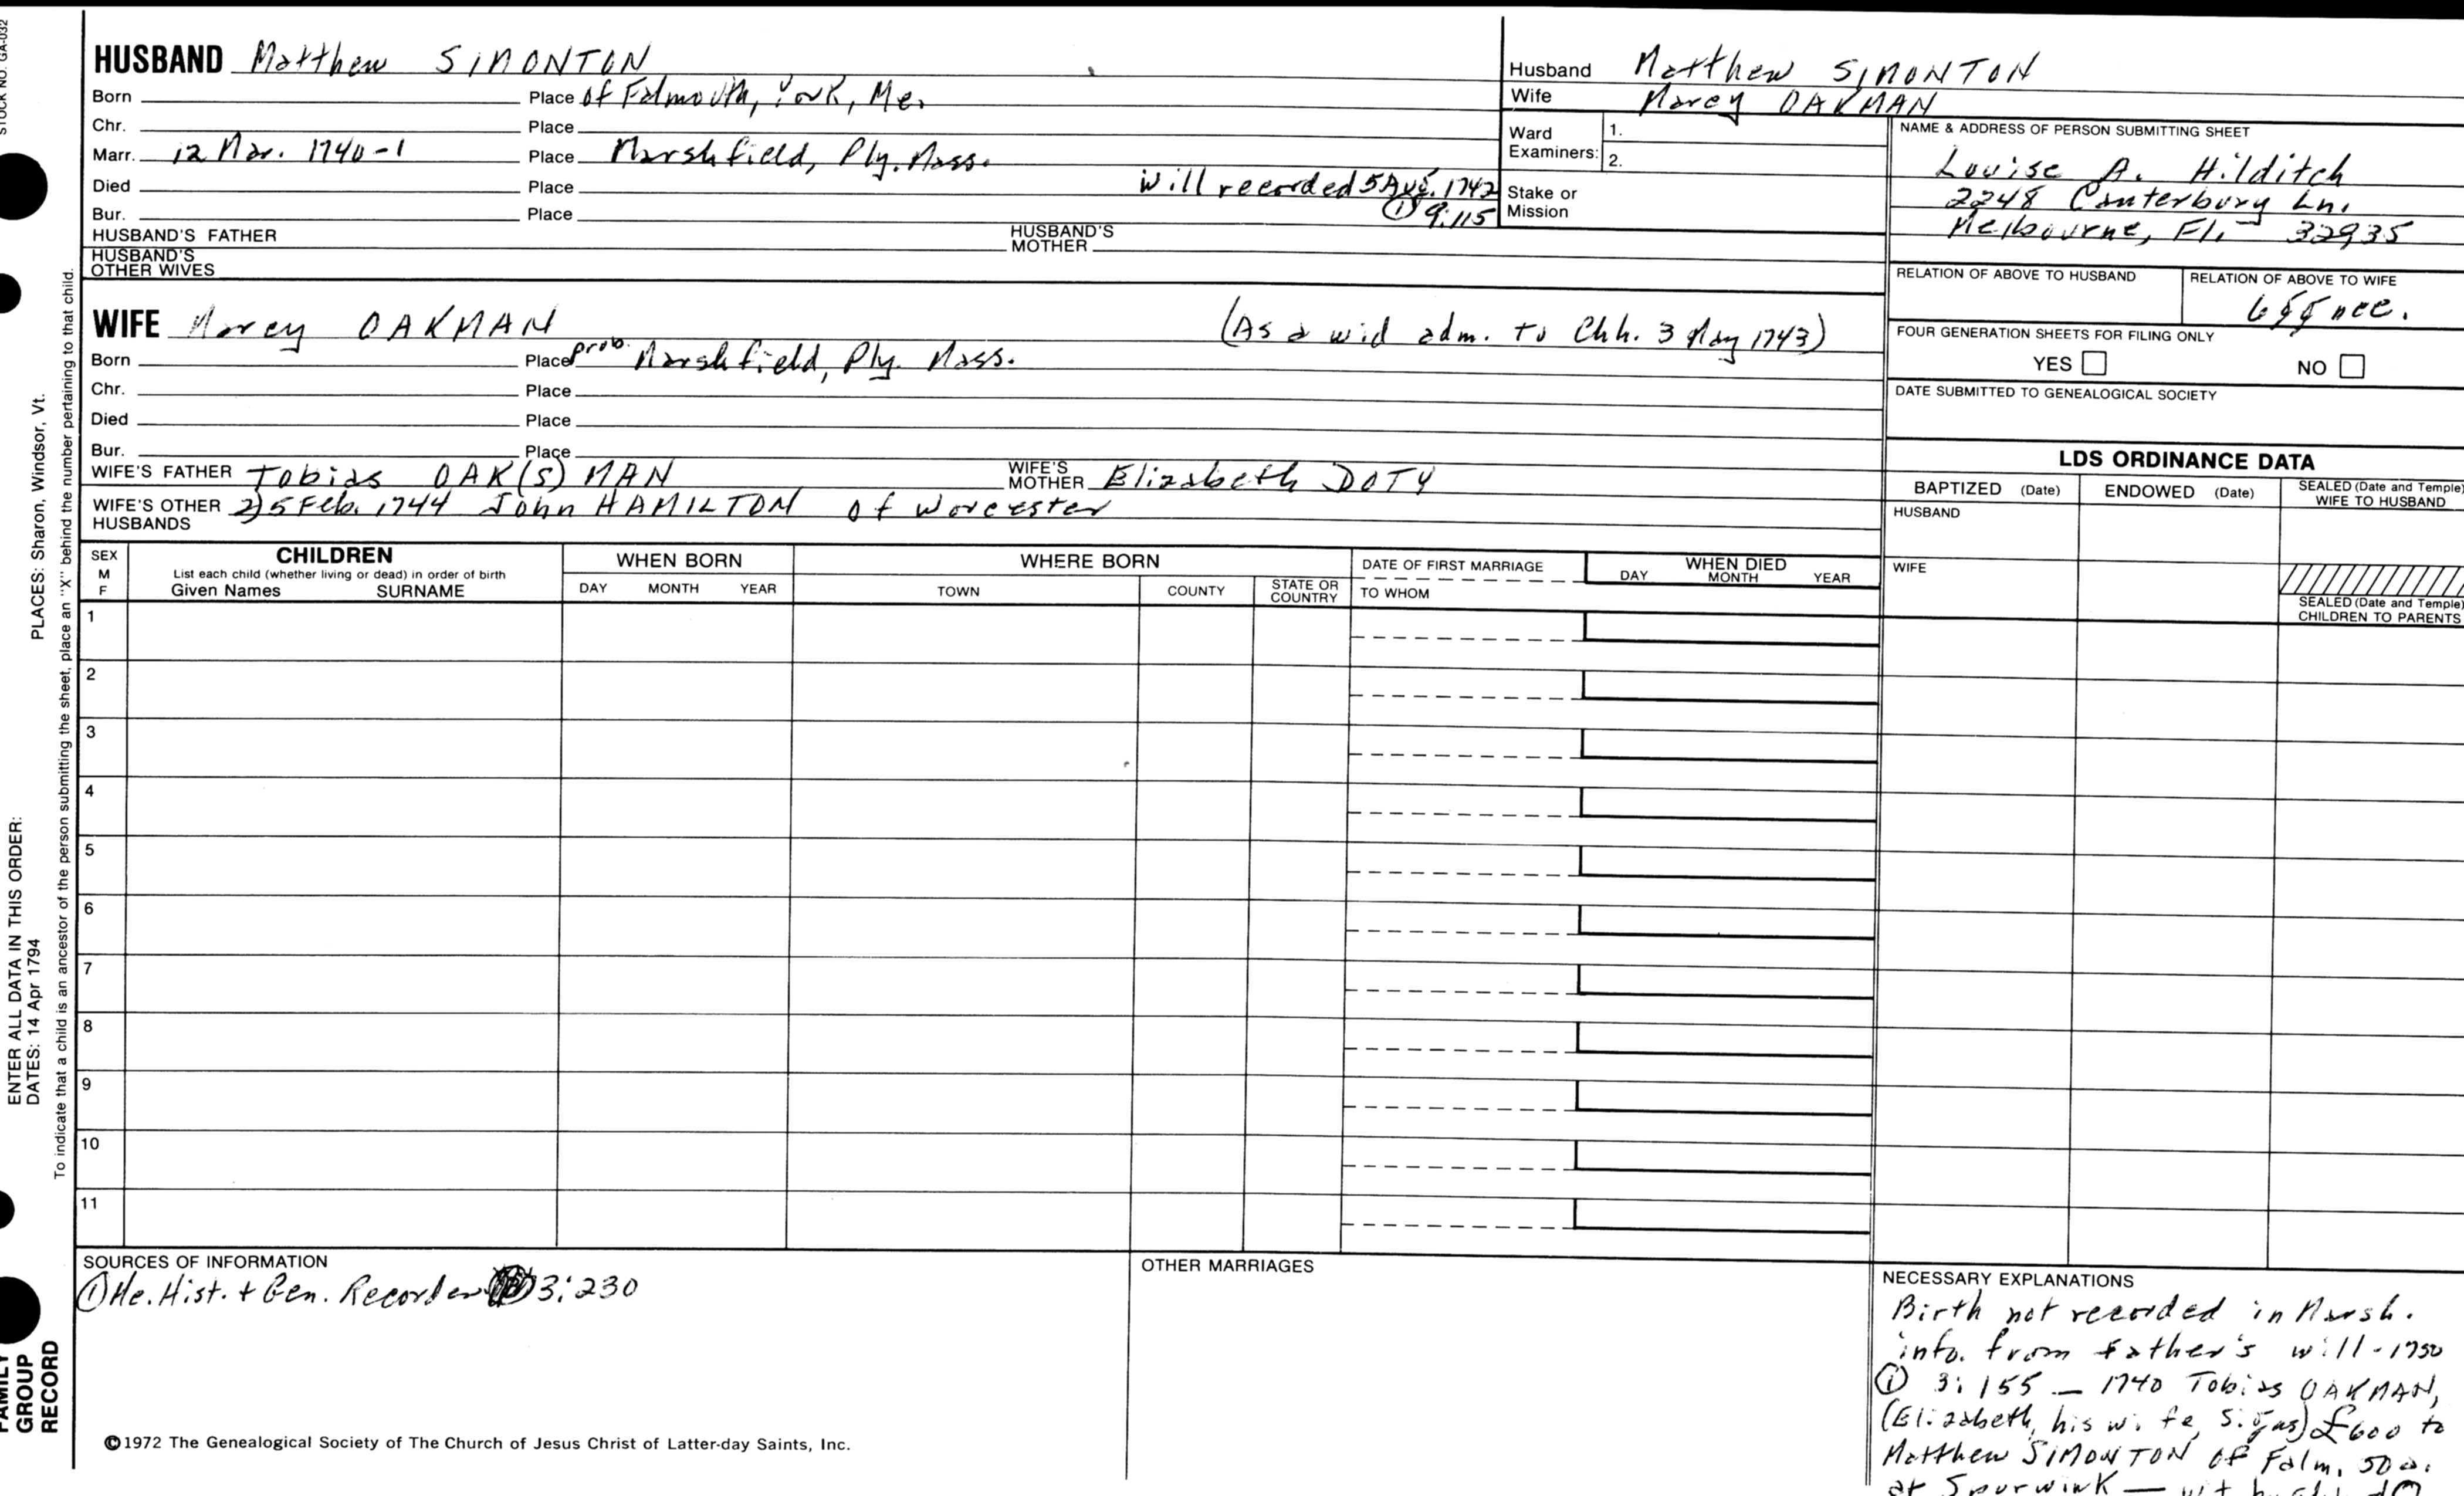 STOCK NO. GA-032
PLACES: Sharon, Windsor, Vt.
ENTER ALL DATA IN THIS ORDER:
DATES: 14 Apr 1794
To indicate that a child is an ancestor of the person submitting the sheet, place an "X" behind the number pertaining to that child.
FAMILY
GROUP
RECORD
HUSBAND Matthew SIMONTON
Born Place of Falmouth, York, Me.
Chr. Place
Marr. 12 Mar. 1740-1 Place Marshfield, Ply. Mass.
Died Place Will recorded 5 Aug. 1742
Bur. Place ① 9:115
HUSBAND'S FATHER HUSBAND'S MOTHER
HUSBAND'S OTHER WIVES
WIFE Marcy OAKMAN (As a wid adm. to Chh. 3 May 1743)
Born Place prob. Marshfield, Ply. Mass.
Chr. Place
Died Place
Bur. Place
WIFE'S FATHER Tobias OAK(S)MAN WIFE'S MOTHER Elizabeth DOTY
WIFE'S OTHER HUSBANDS 2) 5 Feb. 1744 John HAMILTON of Worcester
Husband Matthew SIMONTON
Wife Marcy OAKMAN
Ward Examiners: 1.
2.
Stake or Mission
NAME & ADDRESS OF PERSON SUBMITTING SHEET
Louise A. Hilditch
2248 Canterbury Ln.
Melbourne, Fl. 32935
RELATION OF ABOVE TO HUSBAND RELATION OF ABOVE TO WIFE
FOUR GENERATION SHEETS FOR FILING ONLY
YES NO
DATE SUBMITTED TO GENEALOGICAL SOCIETY
LDS ORDINANCE DATA
BAPTIZED (Date) ENDOWED (Date) SEALED (Date and Temple) WIFE TO HUSBAND
HUSBAND
WIFE
SEALED (Date and Temple) CHILDREN TO PARENTS
SEX M F CHILDREN WHEN BORN WHERE BORN DATE OF FIRST MARRIAGE WHEN DIED
List each child (whether living or dead) in order of birth
Given Names SURNAME DAY MONTH YEAR TOWN COUNTY STATE OR COUNTRY TO WHOM DAY MONTH YEAR
1
2
3
4
5
6
7
8
9
10
11
SOURCES OF INFORMATION
① Me. Hist. + Gen. Recorder 3:230
OTHER MARRIAGES
NECESSARY EXPLANATIONS
Birth not recorded in Marsh.
info. from father's will-1750
① 3:155 — 1740 Tobias OAKMAN,
(Elizabeth, his wife, signs) £600 to
Matthew SIMONTON of Falm. 50 a.
at Spurwink —
©1972 The Genealogical Society of The Church of Jesus Christ of Latter-day Saints, Inc.